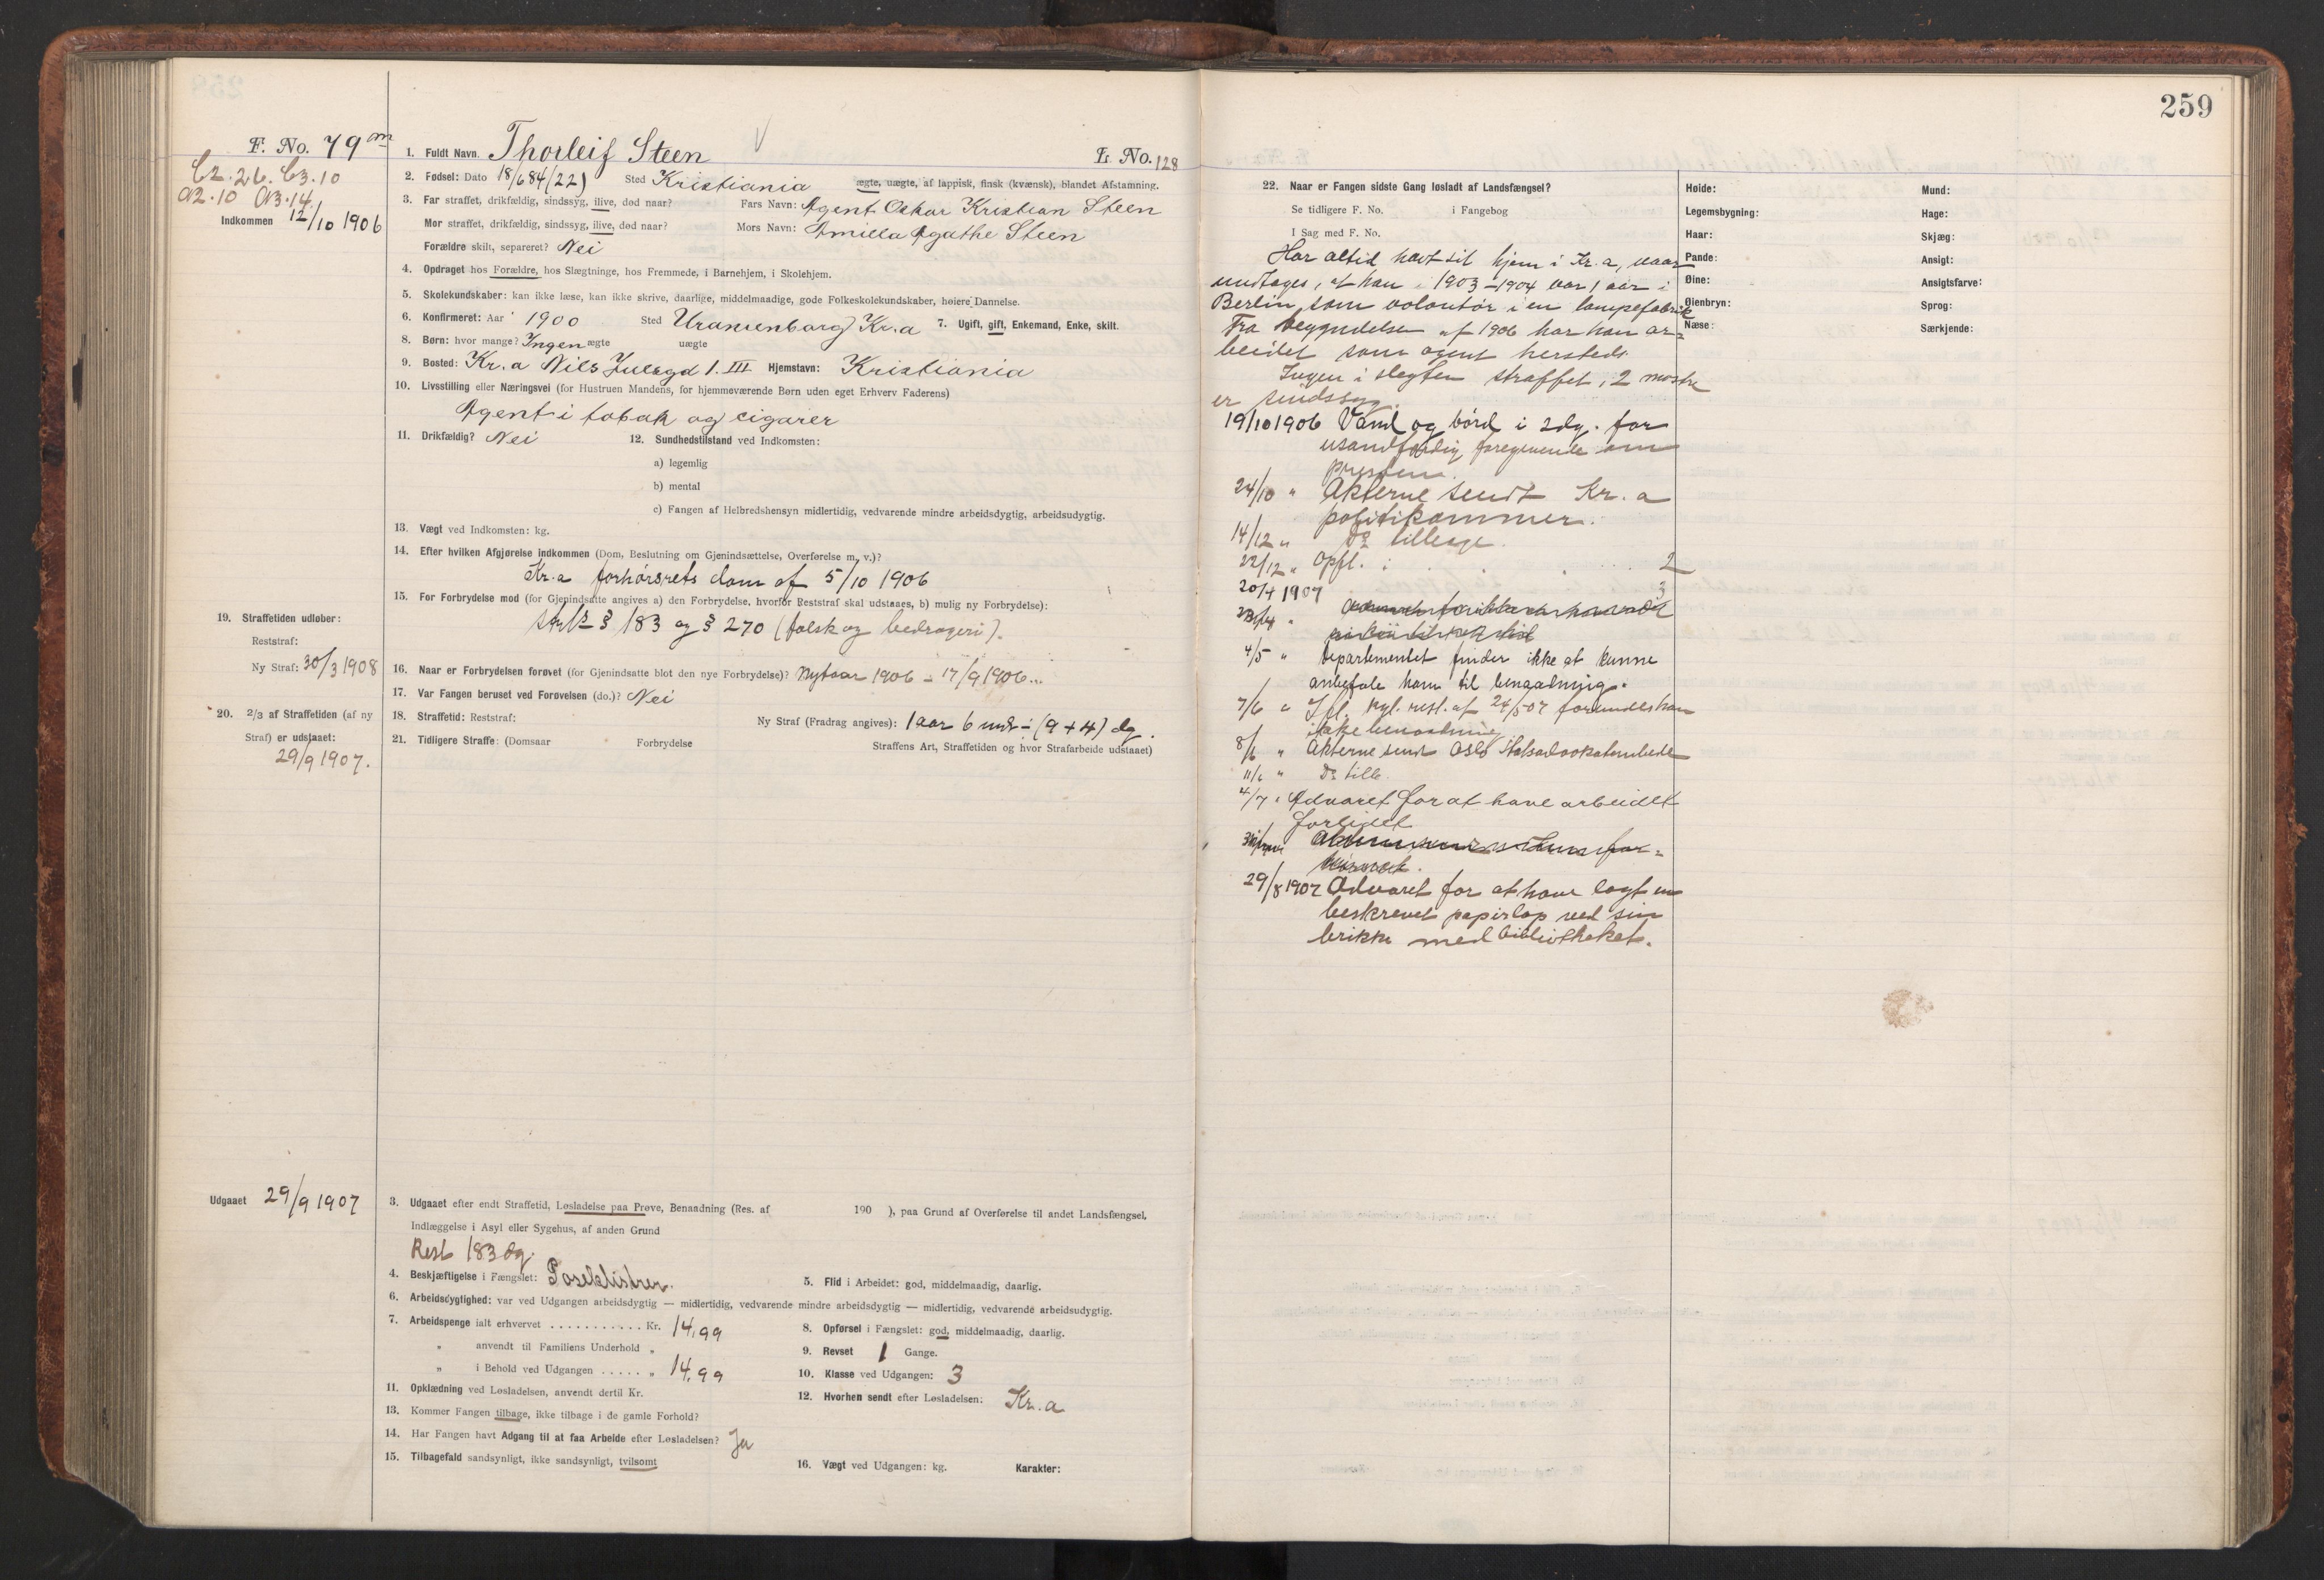 259
F. No. 79 m
C2.26. C3.10
A2.10 A3.14.
Indkommen 12/10 1906
1. Fuldt Navn Thorleif Steen
L No. 128
2. Fødsel: Dato 18/6 84 (22) Sted Kristiania ægte, uægte, af lappisk, finsk (kvænsk), blandet Afstamning.
3. Far straffet, drikfældig, sindssyg, ilive, død naar? Fars Navn: Agent Oskar Kristian Steen
Mor straffet, drikfældig, sindssyg, ilive, død naar? Mors Navn: Amilla Agathe Steen
Forældre skilt, separeret? Nei
4. Opdraget hos Forældre, hos Slægtninge, hos Fremmede, i Barnehjem, i Skolehjem.
5. Skolekundskaber: kan ikke læse, kan ikke skrive, daarlige, middelmaadige, gode Folkeskolekundskaber, høiere Dannelse.
6. Konfirmeret: Aar 1900 Sted Uranienborg Kr.a 7. Ugift, gift, Enkemand, Enke, skilt.
8. Børn: hvor mange? Ingen ægte uægte
9. Bosted: Kr.a Nils Juelsgd 1. III. Hjemstavn: Kristiania
10. Livsstilling eller Næringsvei (for Hustruen Mandens, for hjemmeværende Børn uden eget Erhverv Faderens)
Agent i tobak og cigarer
11. Drikfældig? Nei 12. Sundhedstilstand ved Indkomsten:
a) legemlig
b) mental
c) Fangen af Helbredshensyn midlertidig, vedvarende mindre arbeidsdygtig, arbeidsudygtig.
13. Vægt ved Indkomsten: kg.
14. Efter hvilken Afgjørelse indkommen (Dom, Beslutning om Gjenindsættelse, Overførelse m. v.)?
Kr.a forhørsrets dom af 5/10 1906
15. For Forbrydelse mod (for Gjenindsatte angives a) den Forbrydelse, hvorfor Reststraf skal udstaaes, b) mulig ny Forbrydelse):
§ 183 og § 270 (falsk og bedrageri).
19. Straffetiden udløber:
Reststraf:
Ny Straf: 30/3 1908
16. Naar er Forbrydelsen forøvet (for Gjenindsatte blot den nye Forbrydelse)? Nytaar 1906 - 17/9 1906
17. Var Fangen beruset ved Forøvelsen (do.)? Nei
20. 2/3 af Straffetiden (af ny Straf) er udstaaet:
29/9 1907.
18. Straffetid: Reststraf: Ny Straf (Fradrag angives): 1 aar 6 mdr ÷ (9 + 4) dg.
21. Tidligere Straffe: (Domsaar Forbrydelse Straffens Art, Straffetiden og hvor Strafarbeide udstaaet)
Udgaaet 29/9 1907
3. Udgaaet efter endt Straffetid, Løsladelse paa Prøve, Benaadning (Res. af 190 ), paa Grund af Overførelse til andet Landsfængsel,
Indlæggelse i Asyl eller Sygehus, af anden Grund
Rest 183 dg.
4. Beskjæftigelse i Fængslet: Poseklistrer. 5. Flid i Arbeidet: god, middelmaadig, daarlig.
6. Arbeidsdygtighed: var ved Udgangen arbeidsdygtig — midlertidig, vedvarende mindre arbeidsdygtig — midlertidig, vedvarende arbeidsudygtig.
7. Arbeidspenge ialt erhvervet Kr. 14,99 8. Opførsel i Fængslet: god, middelmaadig, daarlig.
" anvendt til Familiens Underhold " 9. Revset 1 Gange.
" i Behold ved Udgangen " 14,99 10. Klasse ved Udgangen: 3
11. Opklædning ved Løsladelsen, anvendt dertil Kr. 12. Hvorhen sendt efter Løsladelsen: Kr.a
13. Kommer Fangen tilbage, ikke tilbage i de gamle Forhold?
14. Har Fangen havt Adgang til at faa Arbeide efter Løsladelsen? Ja
15. Tilbagefald sandsynligt, ikke sandsynligt, tvilsomt
16. Vægt ved Udgangen: kg. Karakter:
22. Naar er Fangen sidste Gang løsladt af Landsfængsel?
Se tidligere F. No. i Fangebog
I Sag med F. No.
Har altid havt sit hjem i Kr.a, naar
undtages, at han i 1903-1904 var 1 aar i
Berlin som volontør i en lampefabrik
Fra begyndelsen af 1906 har han ar-
beidet som agent hersteds.
Ingen i slegten straffet, 2 mostre
er sindssyg.
19/10 1906 Vand og brød i 2 dg. for
usandfærdig foregivende om
presten.
24/10 " Akterne sendt Kr.a
politikammer.
14/12 " Do tilbage.
22/12 " Opfl. i 2
20/4 1907 3
4/5 " Departementet finder ikke at kunne
anbefale ham til benaadning.
7/6 " Ifl. kgl. resl. af 24/5 07 forundes han
ikke benaadning
8/6 " Akterne sendt Oslo Statsadvokatembede
11/6 " Do tilb.
4/7 " Advaret for at have arbeidet
forlidet
29/8 1907 Advaret for at have lagt en
beskrevet papirlap ved sin
brikke med bibliotheket.
Høide:
Legemsbygning:
Haar:
Pande:
Øine:
Øienbryn:
Næse:
Mund:
Hage:
Skjæg:
Ansigt:
Ansigtsfarve:
Sprog:
Særkjende: